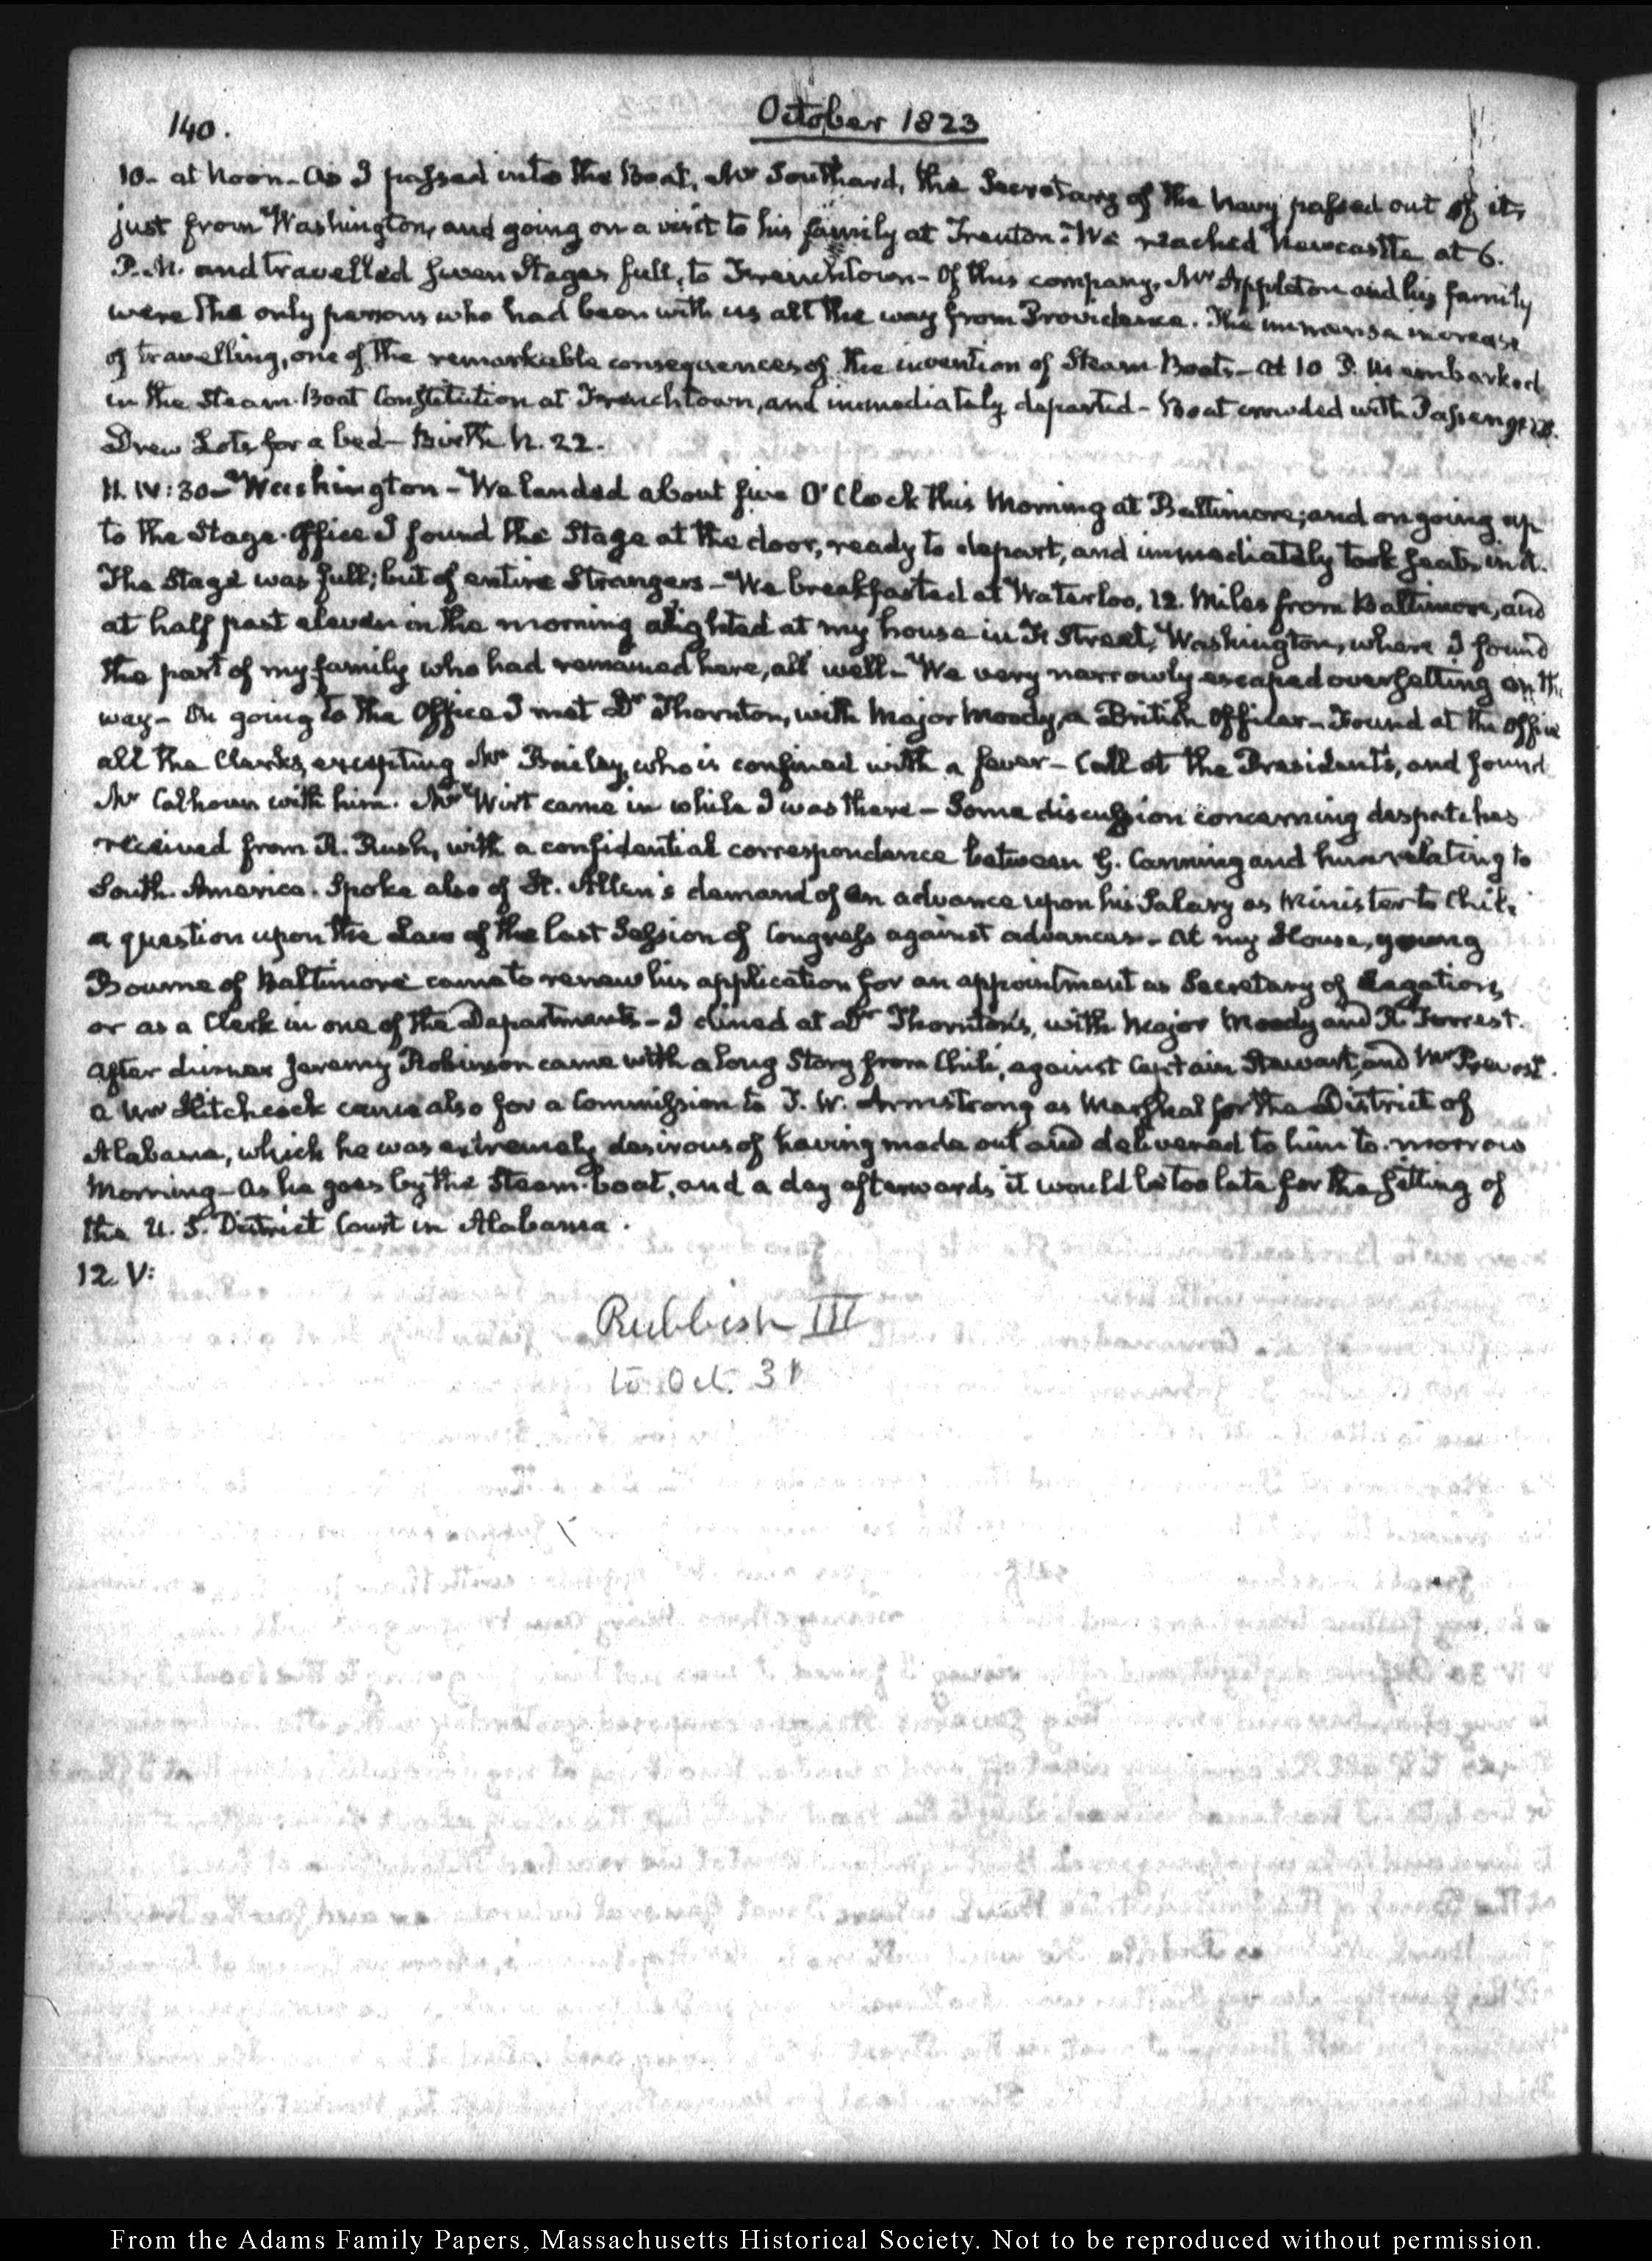 140.
October 1823
10- at Noon- As I passed into the Boat, Mr Southard, the Secretary of the Navy passed out of it,
just from Washington, and going on a visit to his family at Trenton. We reached Newcastle at 6.
P.M. and travelled seven Stages full, to Frenchtown- Of this company, Mr Appleton and his family
were the only persons who had been with us all the way from Providence. The immense increase
of travelling, one of the remarkable consequences of the invention of Steam Boats- At 10 P.M. embarked
in the Steam-Boat Constitution at Frenchtown, and immediately departed- Boat crowded with Passengers.
Drew Lots for a bed- Birth N. 22.
11. IV:30- Washington- We landed about five O'Clock this Morning at Baltimore; and on going up
to the Stage-Office I found the Stage at the door, ready to depart, and immediately took seats in it.
The Stage was full; but of entire Strangers- We breakfasted at Waterloo, 12. Miles from Baltimore, and
at half past eleven in the morning alighted at my house in F. Street, Washington, where I found
the part of my family who had remained here, all well- We very narrowly escaped oversetting on the
way- On going to the Office I met Dr Thornton, with Major Moody, a British Officer- Found at the Office
all the Clerks, excepting Mr Bailey, who is confined with a fever- Call at the President's, and found
Mr Calhoun with him. Mr Wirt came in while I was there- Some discussion concerning despatches
received from R. Rush, with a confidential correspondence between G. Canning and him relating to
South-America. Spoke also of H. Allen's demand of an advance upon his Salary as Minister to Chili
a question upon the Law of the last Session of Congress against advances- At my House, young
Bourne of Baltimore came to renew his application for an appointment as Secretary of Legation,
or as a Clerk in one of the Departments- I dined at Dr Thornton's, with Major Moody and R. Forrest.
After dinner Jeremy Robinson came with a long Story from Chili, against Captain Stewart, and Mr Prevost.
A Mr Hitchcock came also for a Commission to F. W. Armstrong as Marshal for the District of
Alabama, which he was extremely desirous of having made out and delivered to him to-morrow
Morning- As he goes by the Steam-boat, and a day afterwards it would be too late for the sitting of
the U. S. District Court in Alabama.
12. V:
Rubbish III
to Oct. 31
From the Adams Family Papers, Massachusetts Historical Society. Not to be reproduced without permission.